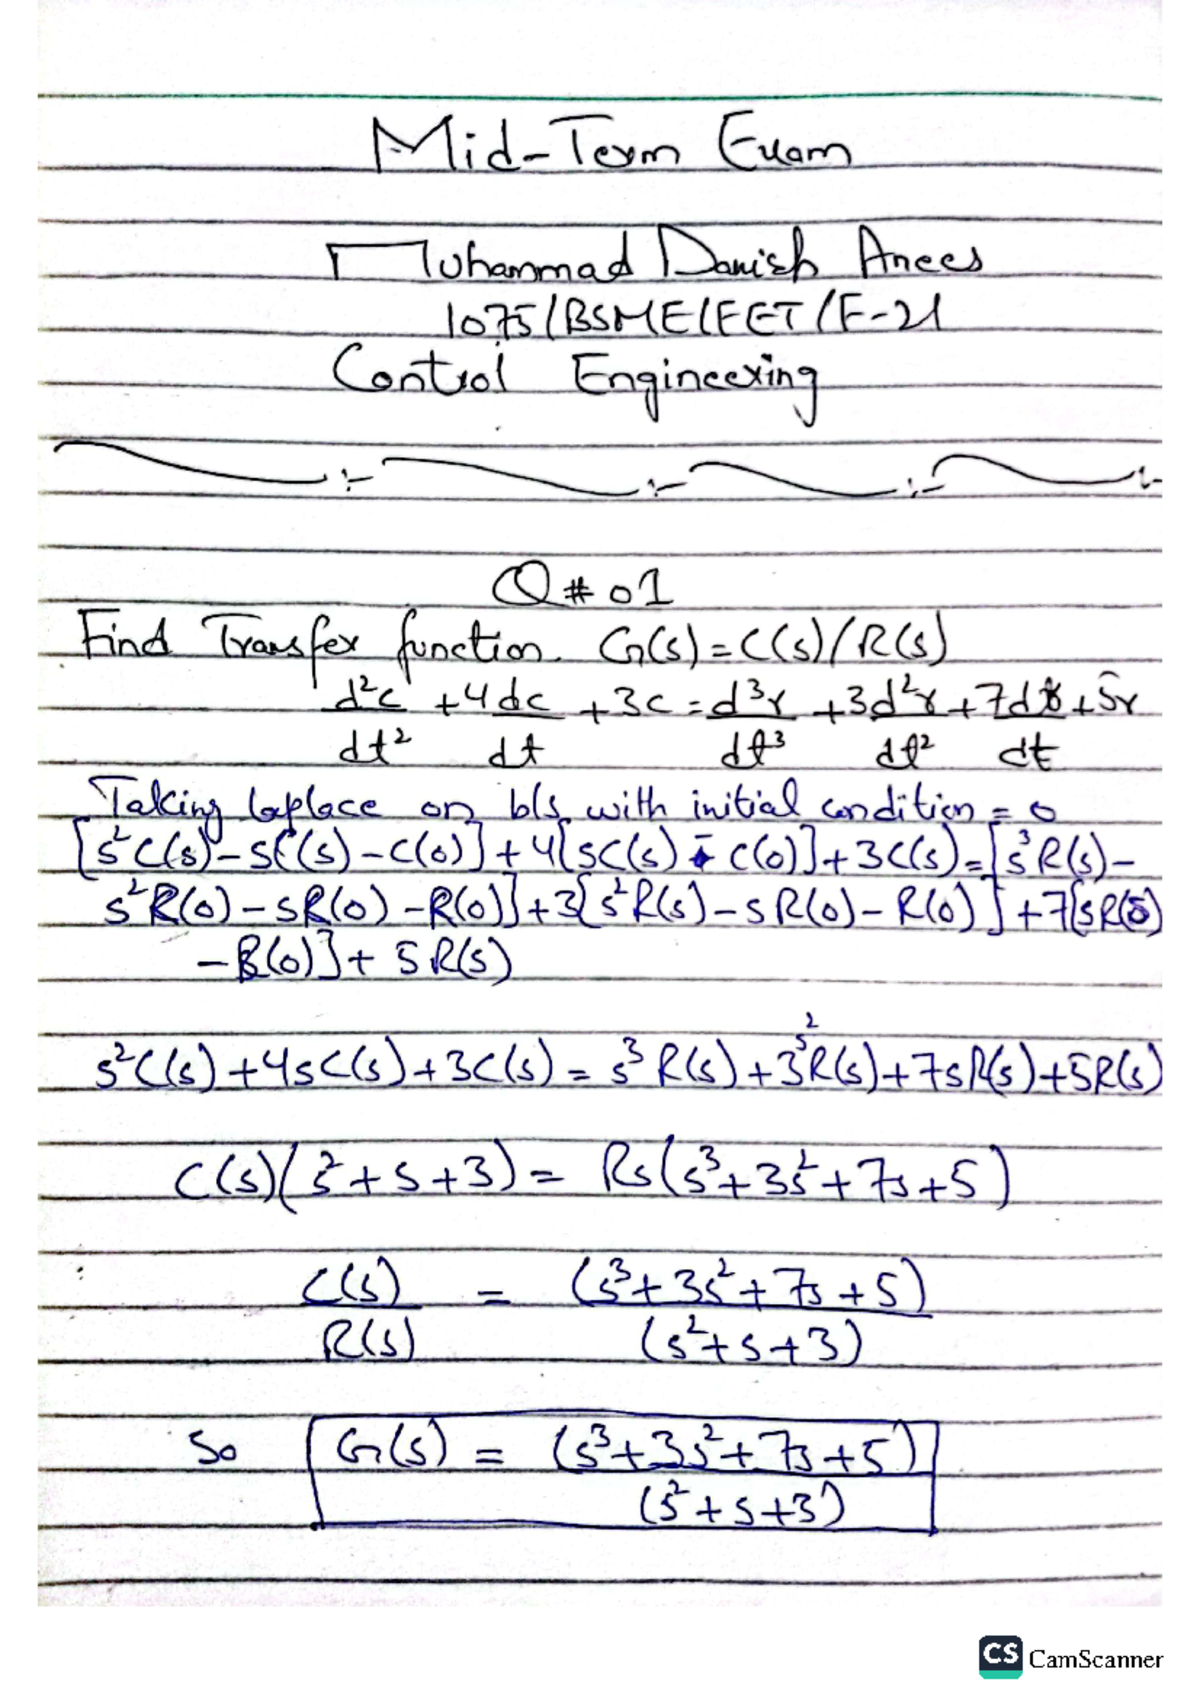 Mid-Term Exam
Muhammad Danish Anees
1075/BSME/FET/F-21
Control Engineering
Q # 01
Find Transfer function. G(s) = C(s)/R(s)
d²c/dt² + 4dc/dt + 3c = d³r/dt³ + 3d²r/dt² + 7dr/dt + 5r
Taking laplace on b/s with initial condition = 0
[s²C(s) - sC(s) - C(0)] + 4[sC(s) - C(0)] + 3C(s) = [s³R(s) -
s²R(0) - sR(0) - R(0)] + 3[s²R(s) - sR(0) - R(0)] + 7[sR(s)
- R(0)] + 5R(s)
s²C(s) + 4sC(s) + 3C(s) = s³R(s) + 3s²R(s) + 7sR(s) + 5R(s)
C(s)(s² + s + 3) = Rs(s³ + 3s² + 7s + 5)
C(s)/R(s) = (s³ + 3s² + 7s + 5)/(s² + s + 3)
So G(s) = (s³ + 3s² + 7s + 5)/(s² + s + 3)
CS CamScanner